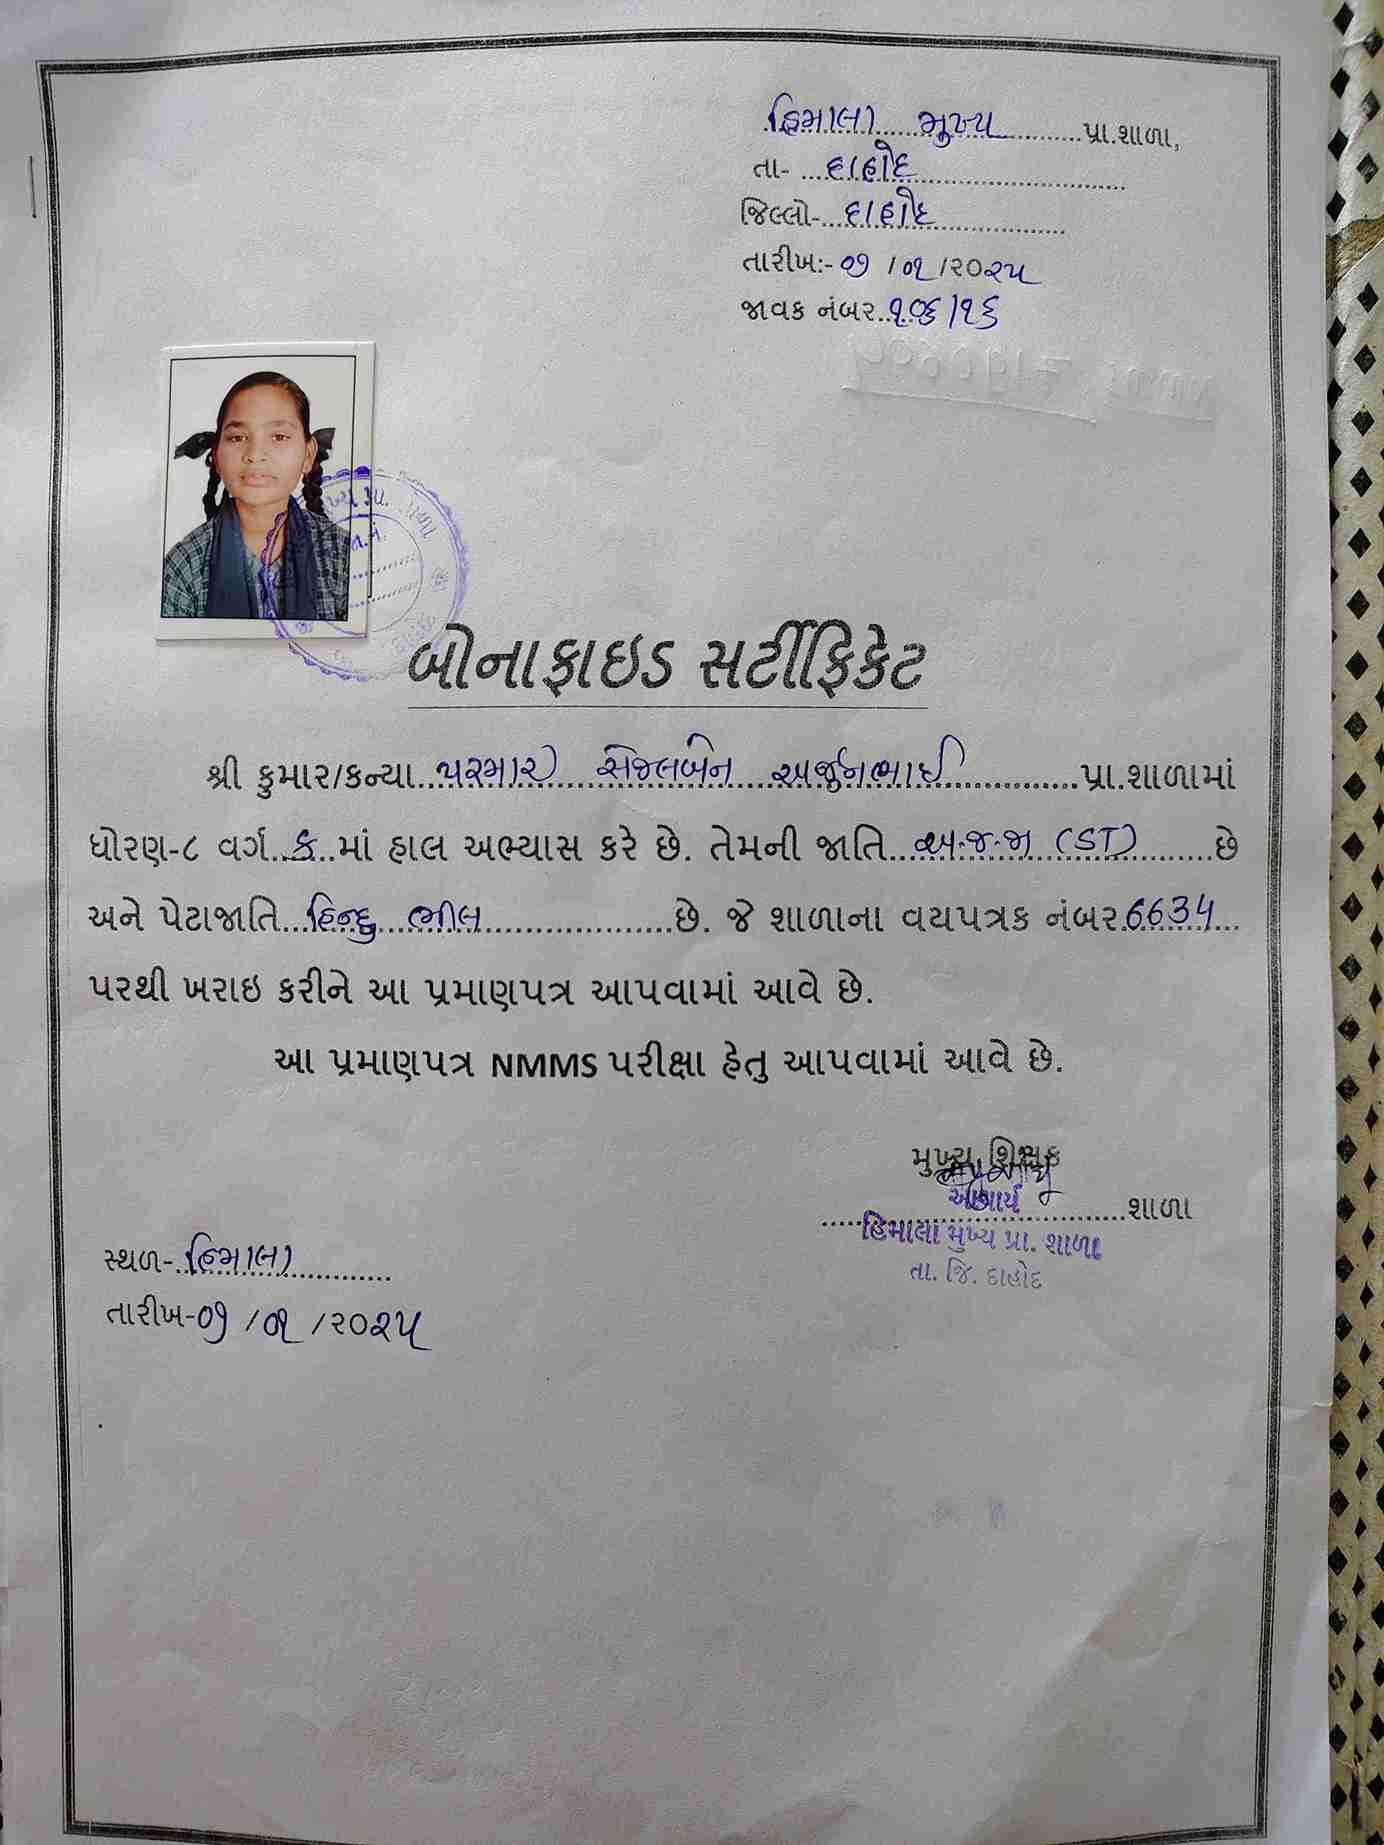 હિમાલા મુખ્ય પ્રા.શાળા,
તા- દાહોદ
જિલ્લો- દાહોદ
તારીખ:- ૦૧ /૦૧ /૨૦૨૫
જાવક નંબર. ૧૦૬/૧૬
બોનાફાઇડ સર્ટીફિકેટ
શ્રી કુમાર/કન્યા પરમાર સેજલબેન અર્જુનભાઈ પ્રા.શાળામાં
ધોરણ-૮ વર્ગ ક માં હાલ અભ્યાસ કરે છે. તેમની જાતિ અ.જ.જા (ST) છે
અને પેટાજાતિ હિન્દુ ભીલ છે. જે શાળાના વયપત્રક નંબર 6634
પરથી ખરાઇ કરીને આ પ્રમાણપત્ર આપવામાં આવે છે.
આ પ્રમાણપત્ર NMMS પરીક્ષા હેતુ આપવામાં આવે છે.
મુખ્ય શિક્ષક
આચાર્ય
શાળા
હિમાલા મુખ્ય પ્રા. શાળા
તા. જિ. દાહોદ
સ્થળ- હિમાલા
તારીખ-૦૧ /૦૧ /૨૦૨૫